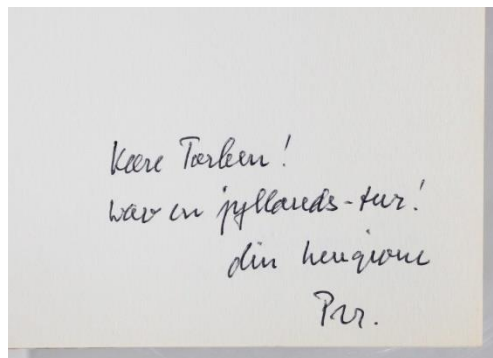 Kære Torben!
en jyllands-tur!
din hengivne